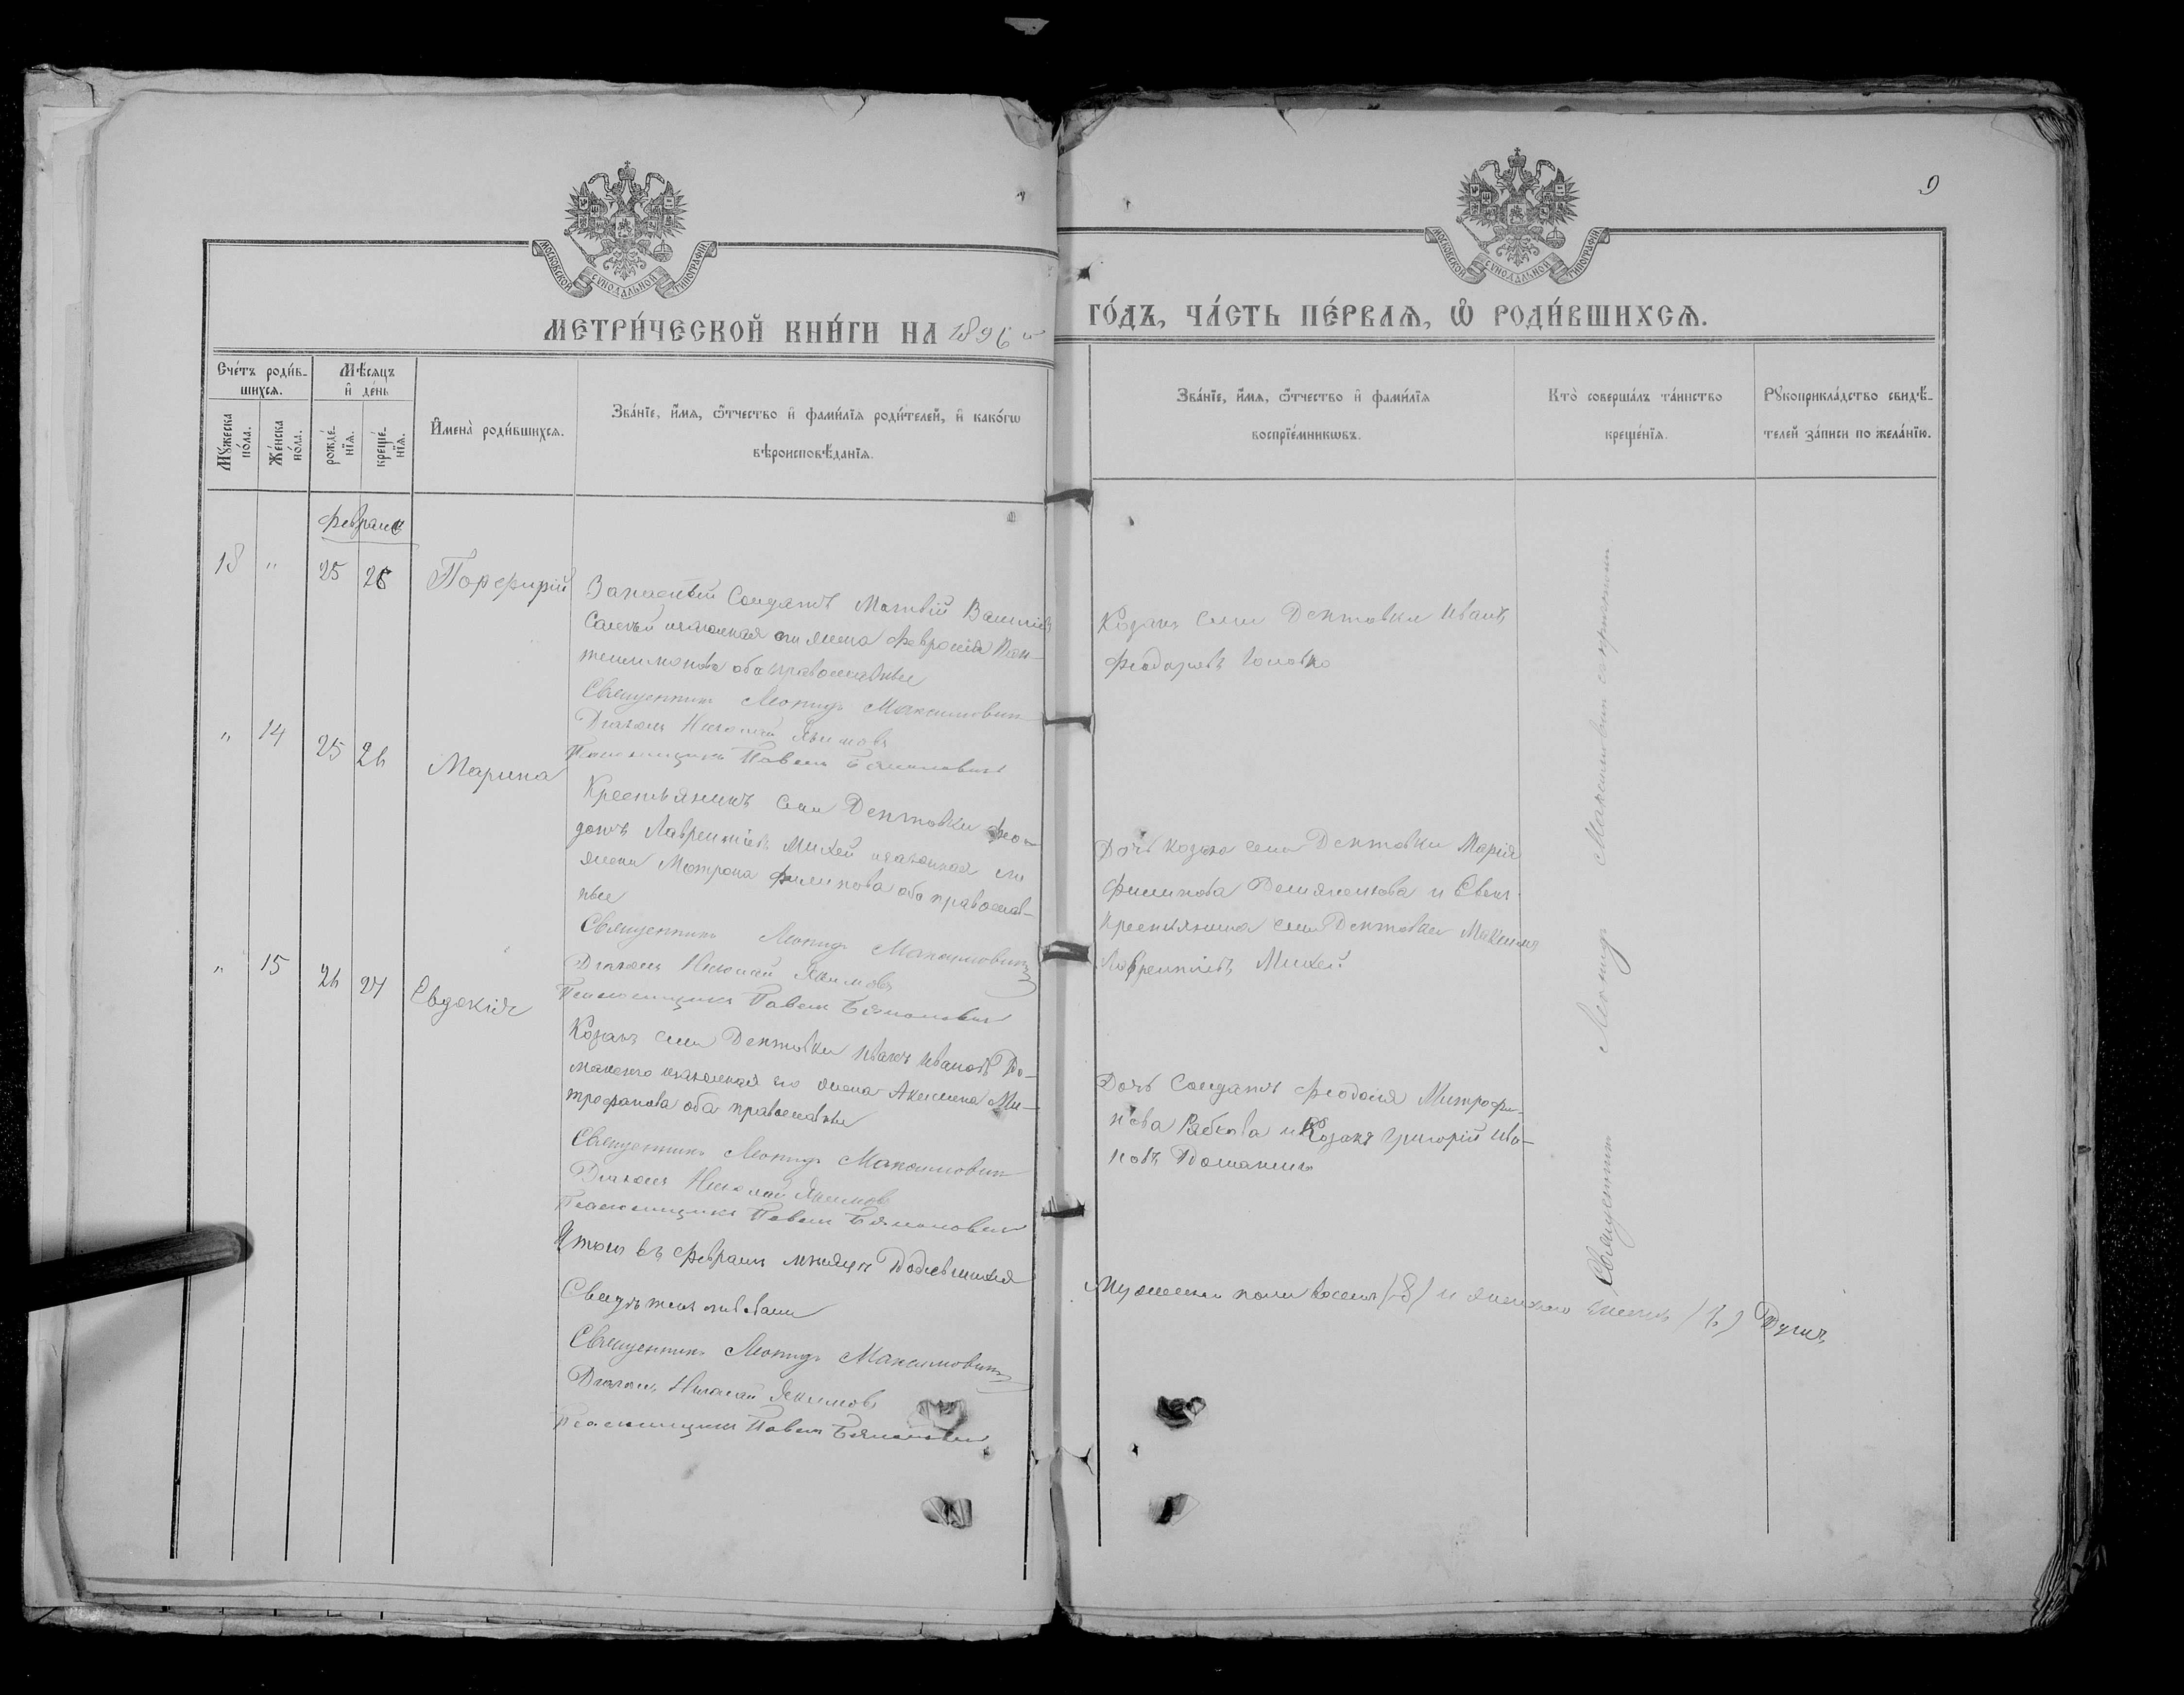 9
МОСКОВСКОЙ СУНОДАЛЬНОЙ ТИПОГРАФІИ
МОСКОВСКОЙ СУНОДАЛЬНОЙ ТИПОГРАФІИ
МЕТРИ́ЧЕСКОЙ КНИ́ГИ НА 1896 й
ГО́ДЪ, ЧА́СТЬ ПЕ́РВАѦ, Ѡ҆ РОДИ́ВШИХСѦ.
Сче́тъ роди́в-
шихсѧ.
Мꙋ́жеска по́ла.
Же́нска по́ла.
Мѣ́сѧцъ
и҆ де́нь
рожде́-
нїѧ.
креще́-
нїѧ.
И҆мена̀ роди́вшихсѧ.
Зва́нїе, и҆́мѧ, ѻ҆́тчество и҆ фами́лїѧ роди́телей, и҆ како́гѡ
вѣроисповѣ́данїѧ.
Зва́нїе, и҆́мѧ, ѻ҆́тчество и҆ фами́лїѧ
воспрїе́мникѡвъ.
Кто̀ соверша́лъ та́инство
креще́нїѧ.
Рꙋкоприкла́дство свидѣ́-
телей за́писи по жела́нїю.
Февраль
18 " 25 26 Порфирій
Запасный Солдатъ Матвій Василіевъ
законная его жена Февронія Пан-
телимонова оба православные
Священникъ Леонидъ Максимовичъ
Діаконъ Николай Якимовъ
Псаломщикъ Павелъ
Козакъ села Дептовки Иванъ
Феодоровъ Головко
" 14 25 26 Марина
Крестьянинъ села Дептовки Фео-
дотъ Лаврентіевъ Михей законная его
жена Матрона Филипова оба православ-
ные
Священникъ Леонидъ Максимовичъ
Діаконъ Николай Якимовъ
Псаломщикъ Павелъ
Дочь козака села Дептовки Марія
Филипова и
Крестьянина села Дептовки Максимъ
Лаврентіевъ Михей
" 15 26 27 Евдокія
Козакъ села Дептовки Иванъ Ивановъ До-
законная его жена Акилина Ми-
трофанова оба православные
Священникъ Леонидъ Максимовичъ
Діаконъ Николай Якимовъ
Псаломщикъ Павелъ
Дочь Солдата Феодосія Митрофа-
нова и Козакъ Григорій Ива-
новъ
Итого въ Февралѣ мѣсяцѣ Родившихся
Мужеска пола восемь (8) и женскаго
Свидѣтельствовали
Священникъ Леонидъ Максимовичъ
Діаконъ Николай Якимовъ
Псаломщикъ Павелъ
Священникъ Леонидъ Максимовичъ